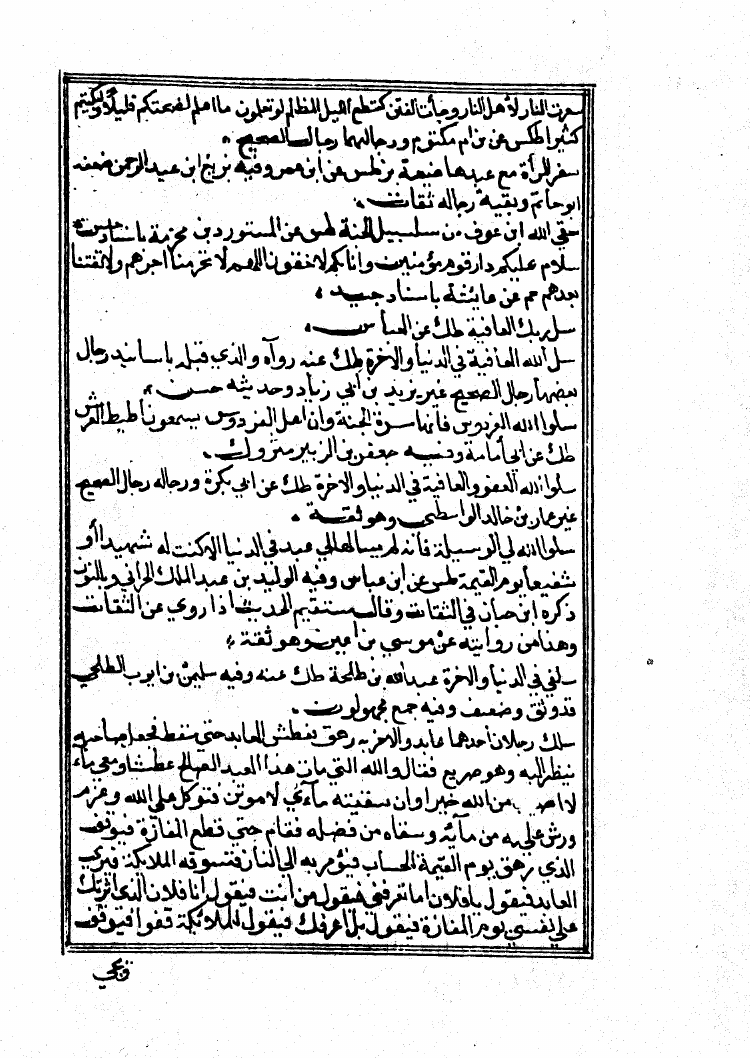 سعرت النار لأهل النار وجأت الفتن كقطع الليل المظلم لو تعلمون ما اعلم لضحكتم قليلا ولبكيتم
كثيرا طكس عن بن ام مكتوم ورجالهما رجال الصحيح
سفر المرأة مع عبدها ضيعة بز طس عن ابن عمر وفيه بزيع ابن عبد الرحمن ضعفه
ابو حاتم وبقية رجاله ثقات
سقي الله ابن عوف من سلسبيل الجنة طس عن المستورد بن مخرمة باسناد حسن
سلام عليكم دار قوم مؤمنين وانا بكم لاحقون اللهم لا تحرمنا اجرهم ولا تفتنا
بعدهم حم عن عايشة باسناد جيد
سل ربك العافية طك عن العباس
سل الله العافية في الدنيا والاخرة طك عنه رواه والذي قبله باسانيد رجال
بعضها رجال الصحيح غير يزيد بن ابي زياد وحديثه حسن
سلوا الله الفردوس فانها سرة الجنة وان اهل الفردوس يسمعون أطيط العرش
طك عن ابي أمامة وفيه جعفر بن الزبير متروك
سلوا الله العفو والعافية في الدنيا والاخرة طك عن ابي بكرة ورجاله رجال الصحيح
غير عمار بن خالد الواسطي وهو ثقة
سلوا الله لي الوسيلة فأنه لم يسالها لي عبد في الدنيا الا كنت له شهيدا أو
شفيعا يوم القيمة طس عن ابن عباس وفيه الوليد بن عبد الملك الحراني وبالنون
ذكره ابن حبان في الثقات وقال مستقيم الحديث اذا روي عن الثقات
وهذا من روايته عن موسي بن أعين وهو ثقة
سلفي في الدنيا والاخرة عبد الله بن طلحة طك عنه وفيه سليمن بن ايوب الطلحي
قد وثق وضعف وفيه جمع مجهولون
سلك رجلان أحدهما عابد والاخر به رهق فعطش العابد حتي سقط فجعل صاحبه
ينظر اليه وهو صريع فقال والله لئن مات هذا العبد الصالح عطشا ومعي ماء
لا اصيب من الله خيرا وان سقيته مآءي لاموتن فتوكل علي الله وعزم
ورش عليه من مآئه وسقاه من فضله فقام حتي قطع المفازة فيوقف
الذي به رهق يوم القيمة للحساب فيؤمر به الي النار فتسوقه الملائكة فيري
العابد فيقول يا فلان اما تعرفني فيقول من انت فيقول انا فلان الذي اثرتك
علي نفسي يوم المفازة فيقول بلي اعرفك فيقول للملائكة قفوا فيوقف